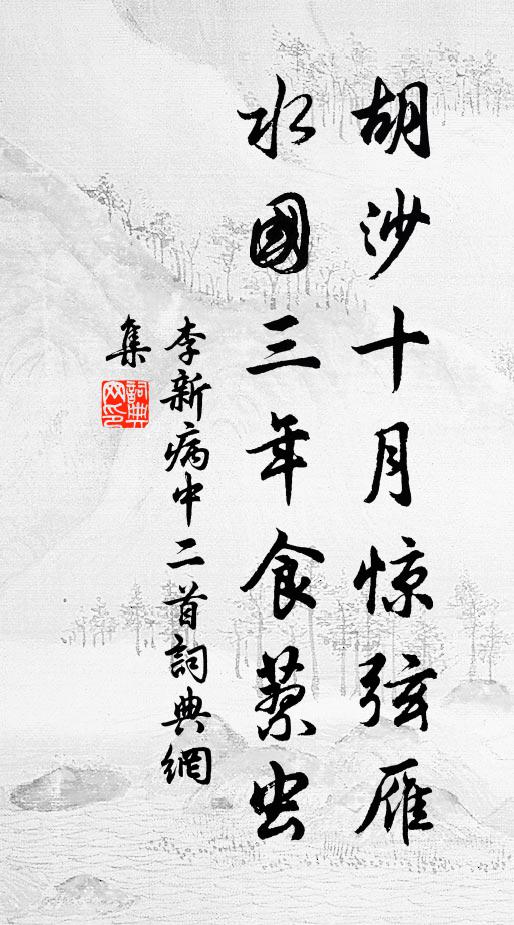 胡沙十月惊弦雁
水國三年食蓼虫
李新病中二首詞典網
集
詞典網印